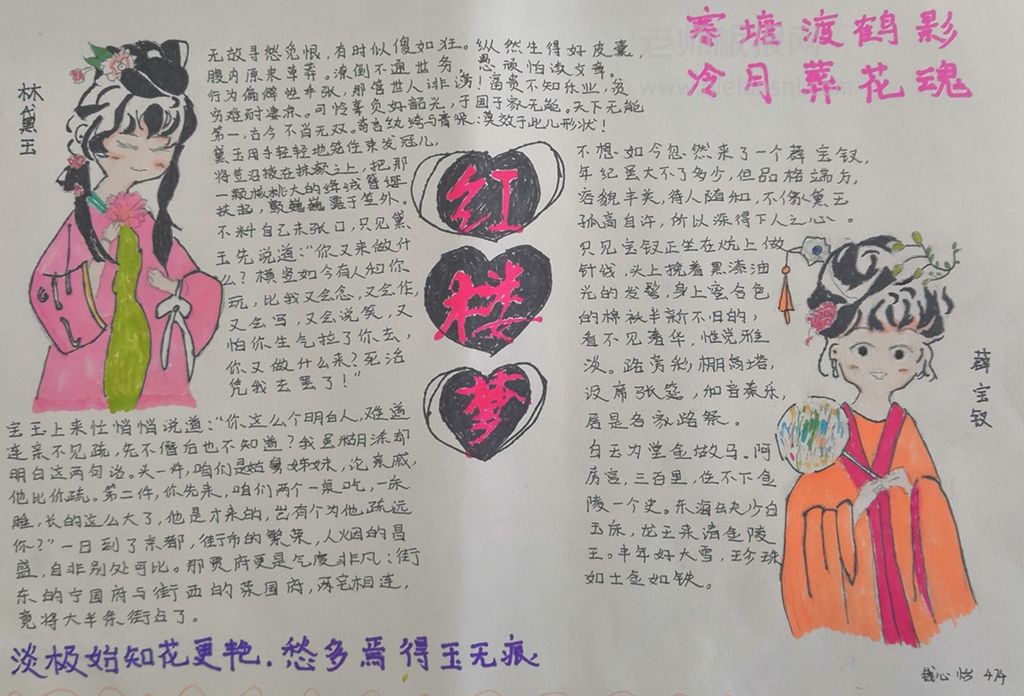 寒塘渡鹤影
冷月葬花魂
林黛玉
无故寻愁觅恨，有时似傻如狂。纵然生得好皮囊，
腹内原来草莽。潦倒不通世务，愚顽怕读文章。
行为偏僻性乖张，那管世人诽谤！富贵不知乐业，贫
穷难耐凄凉。可怜辜负好韶光，于国于家无能。天下无能
第一，古今不肖无双。寄言纨绔与膏粱：莫效于此儿形状！
黛玉用手轻轻地笼住束发冠儿，
将笠沿掖在抹额之上，把那
一颗核桃大的绛绒簪缨
扶起，颤巍巍露于笠外。
不料自己未张口，只见黛
玉先说道：“你又来做什
么？横竖如今有人和你
玩，比我又会念，又会作，
又会写，又会说笑，又
怕你生气拉了你去，
你又做什么来？死活
凭我去罢了！”
宝玉上来忙悄悄说道：“你这么个明白人，难道
连亲不见疏，先不僭后也不知道？我虽糊涂却
明白这两句话。头一件，咱们是姑舅姊妹，论亲戚，
他比你疏。第二件，你先来，咱们两个一桌吃，一床
睡，长的这么大了，他是才来的，岂有个为他疏远
你？”一日到了京都，街市的繁荣，人烟的昌
盛，自非别处可比。那贾府更是气度非凡：街
东的宁国府与街西的荣国府，两宅相连，
竟将大半条街占了。
淡极始知花更艳．愁多焉得玉无痕
红
楼
梦
不想如今忽然来了一个薛宝钗，
年纪虽大不了多少，但品格端方，
容貌丰美，待人随和，不像黛玉
孤高自许，所以深得下人之心。
只见宝钗正坐在炕上做
针线，头上挽着黑漆油
光的发髻，身上蜜合色
的棉袄半新不旧的，
看不见奢华，惟觉雅
淡。路旁彩棚高搭，
设席张筵，和音奏乐，
居是各家路祭。
白玉为堂金做马。阿
房宫，三百里，住不下金
陵一个史。东海缺少白
玉床，龙王来请金陵
王。丰年好大雪，珍珠
如土金如铁。
薛宝钗
钱心怡 474